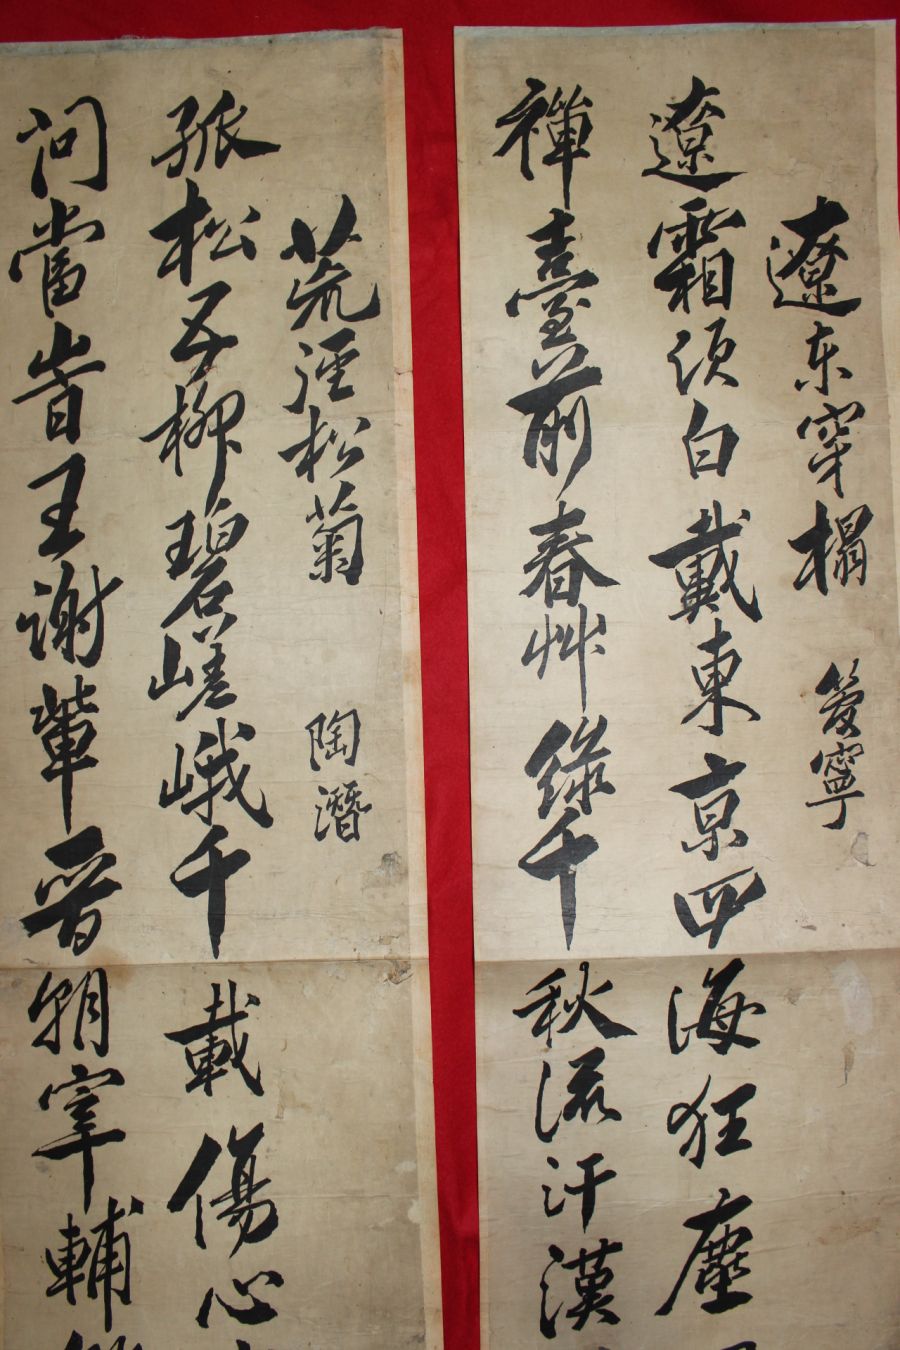 遼东穿榻 管寧
遼霜須白戴東京四海狂塵
禪臺前春艸綠千秋流汗漢
荒逕松菊 陶潛
孤松五柳碧嵯峨千載傷心
問當旹王謝輩晉朝宰輔